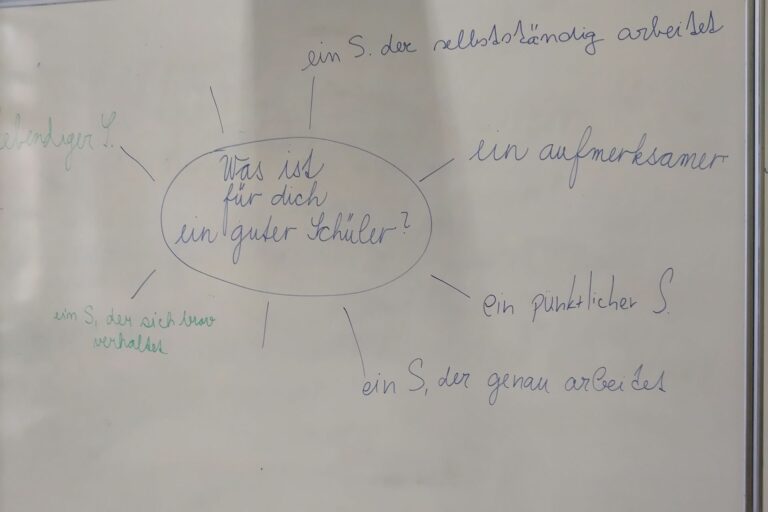 ein S. der selbstständig arbeitet
lebendiger S.
ein aufmerksamer
Was ist
für dich
ein guter Schüler?
ein pünktlicher S.
ein S, der sich brav
verhaltet
ein S, der genau arbeitet